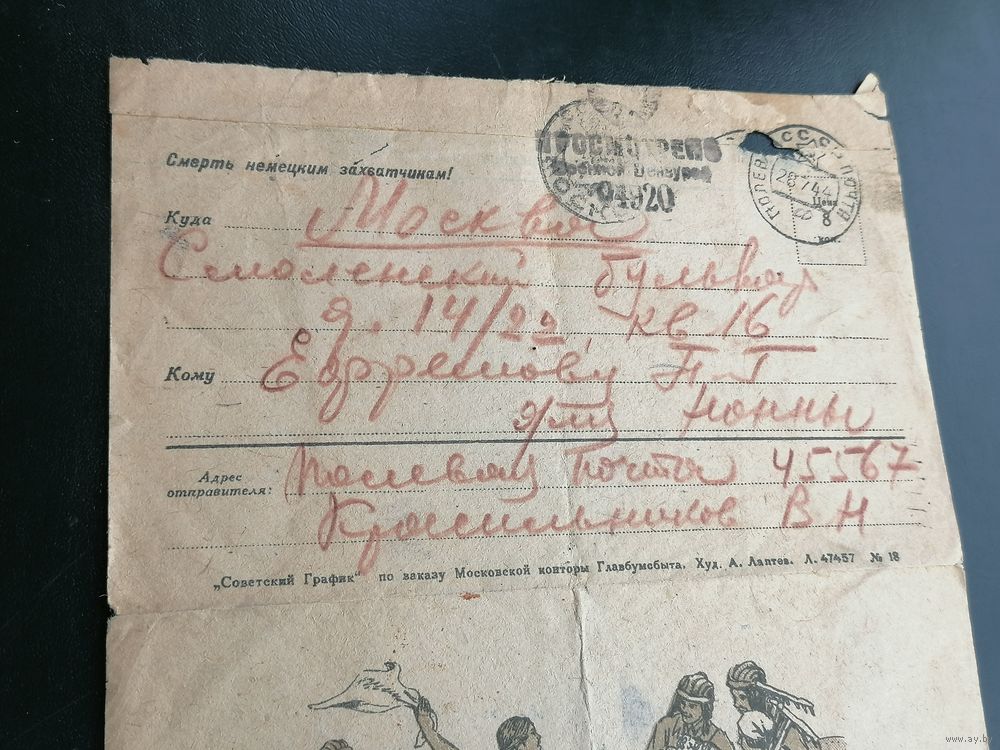 Смерть немецким захватчикам!
ПРОСМОТРЕНО
Военной Цензурой
04920
СССР ПОЧТА
ПОЛЕВ
28 7 44
Цена
8
коп.
Куда Москва
Смоленский бульвар
д. 14/22, кв 16
Кому Ефремову П.Г.
для Нонны
Адрес отправителя: Полевая Почта 45567
Красильников В Н
„Советский График“ по заказу Московской конторы Главбумсбыта. Худ. А. Лаптев. Л. 47457 № 18
www.ay.by